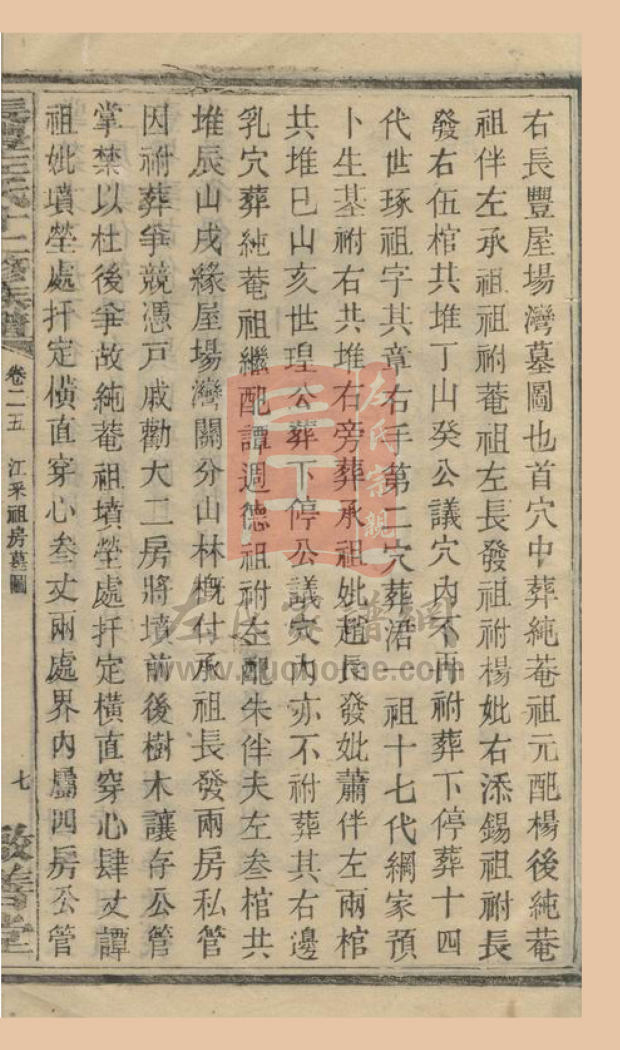 右長豐屋場灣墓圖也首穴中葬純菴祖元配楊後純菴
祖伴左承祖祖祔菴祖左長發祖祔楊妣右添錫祖祔長
發右伍棺共堆丁山癸公議穴內不再祔葬下停葬十四
代世琢祖字其章右手第二穴葬浯一祖十七代綱家預
卜生基祔右共堆右旁葬承祖妣趙長發妣蕭伴左兩棺
共堆巳山亥世瑝公葬下停公議穴內亦不祔葬其右邊
乳穴葬純菴祖繼配譚週德祖祔左配朱伴夫左叁棺共
堆辰山戌緣屋場灣關分山林概付承祖長發兩房私管
因祔葬爭競憑戶戚勸大二房將墳前後樹木讓存公管
掌禁以杜後爭故純菴祖墳塋處扦定橫直穿心肆丈譚
祖妣墳塋處扦定橫直穿心叁丈兩處界內屬四房公管
卷二五 江采祖房墓圖
七
敦善堂
左氏宗親
左氏家譜網
www.zuohome.com